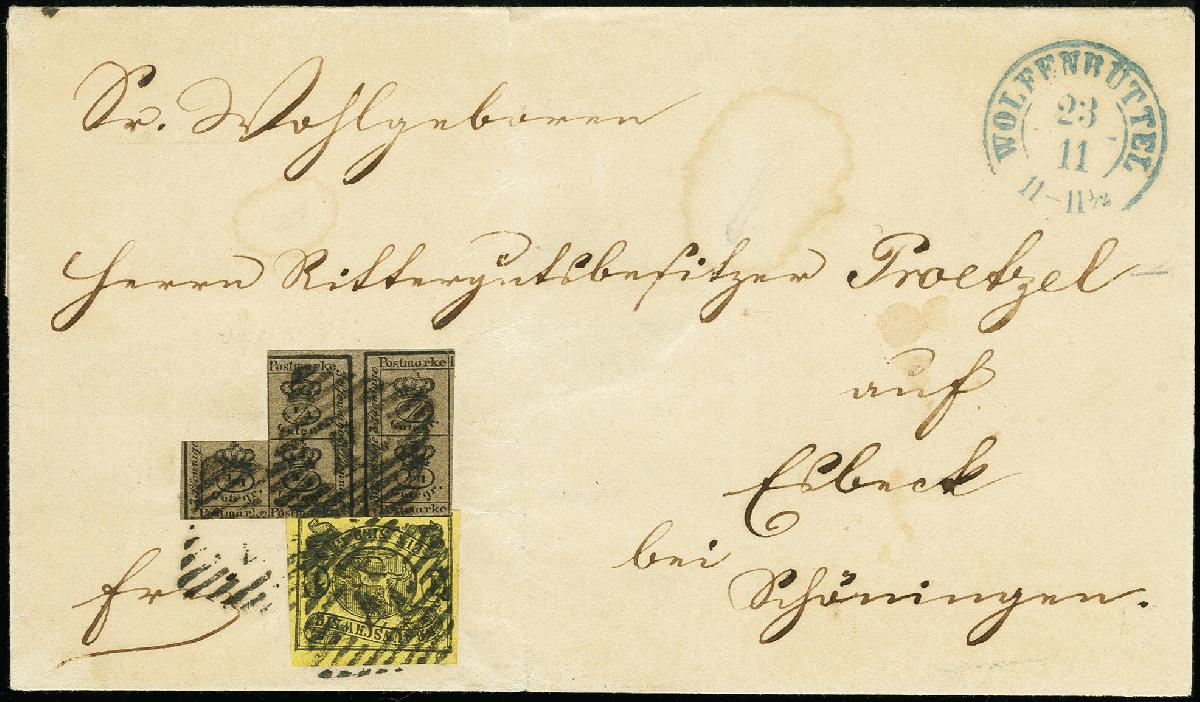 Sr. Wohlgeboren
WOLFENBÜTTEL
23
11
11-11½
Herrn Rittergutsbesitzer Proetzel
auf
Esbeck
bei
Schöningen.
Postmarke Postmarke
Postmarke Postmarke Postmarke